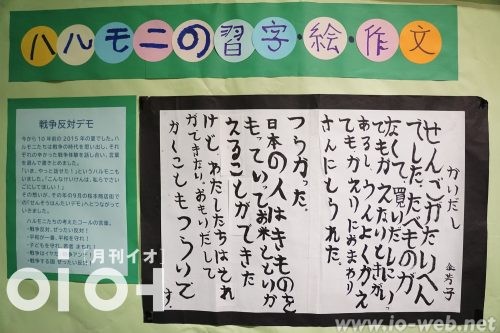 ハルモニの習字・絵・作文
戦争反対デモ
今から10年前の2015年の夏でした。ハ
ルモニたちは戦争の時代を思い出し、それ
ぞれの
戦争体験を話し合い、言葉
を選んで書きとめました。
「いま、やっと話せた！」というハルモニもい
ました。「こんなけいけんは、私らでさいご
にしてほしい！」
その想いが、その年の9月の桜本商店街で
の「せんそうはんたいデモ」へとつながって
いきました。
ハルモニたちの考えたコールの言葉。
・戦争反対、ぜったい反対！
・平和が一番、平和を守れ！
・子どもを守れ、
・戦争はイヤだ
・戦争する国 ぜったい反対！
かいだし
金芳子
せんごがたいへん
でした。たべものが
なくて、買いだしにいっ
てもかえないときが
あるし、うんよくかえ
てもかえりにおまわり
さんにもとられ、
つらかった。
日本の人はきものを
もっていってお米ととりか
えることができた
けど、わたしたちはそれ
ができない。おもいだして
かくこともつらいで
す。
月刊イオ
이어
www.io-web.net